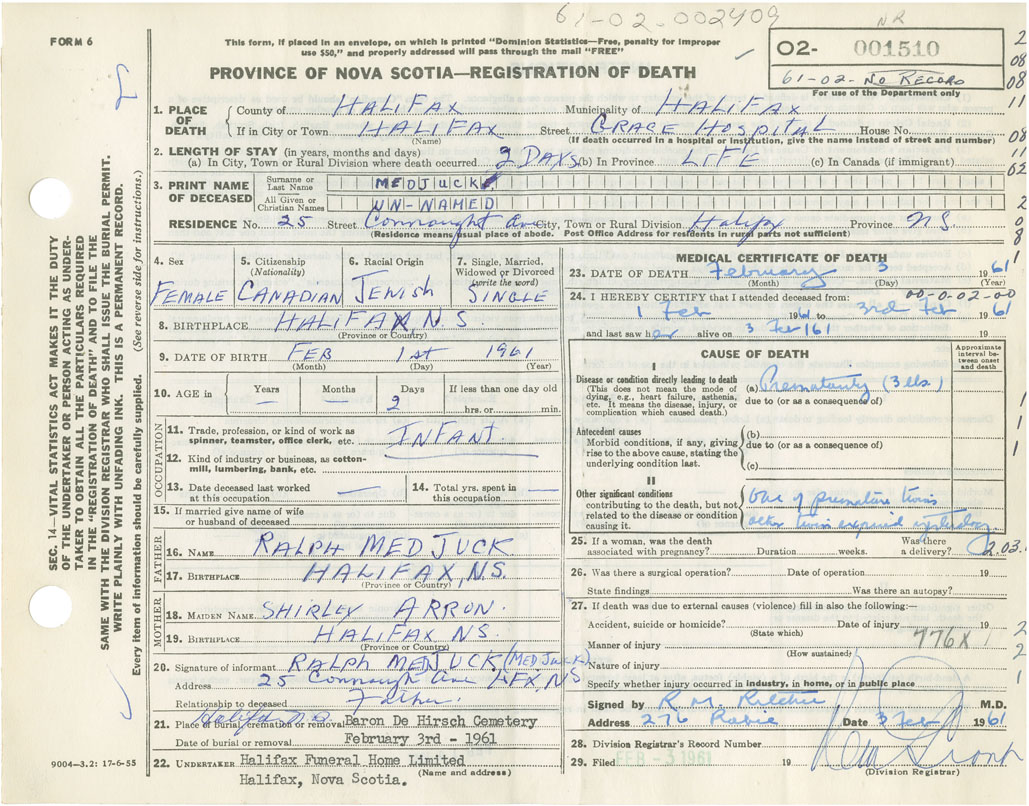 61-02-002409
NR
FORM 6
This form, if placed in an envelope, on which is printed "Dominion Statistics—Free, penalty for improper
use $50," and properly addressed will pass through the mail "FREE"
O2- 001510
61-02- NO RECORD
For use of the Department only
PROVINCE OF NOVA SCOTIA—REGISTRATION OF DEATH
2
08
08
11
08
11
62
2
0
8
1
1. PLACE OF DEATH
County of HALIFAX Municipality of HALIFAX
If in City or Town HALIFAX Street GRACE HOSPITAL House No.
(Name) (If death occurred in a hospital or institution, give the name instead of street and number)
2. LENGTH OF STAY (in years, months and days)
(a) In City, Town or Rural Division where death occurred 2 DAYS (b) In Province LIFE (c) In Canada (if immigrant)
3. PRINT NAME OF DECEASED
Surname or Last Name MEDJUCK
All Given or Christian Names UN-NAMED
RESIDENCE No. 25 Street Connaught Ave City, Town or Rural Division Halifx Province NS.
(Residence means usual place of abode. Post Office Address for residents in rural parts not sufficient)
4. Sex
FEMALE
5. Citizenship
(Nationality)
CANADIAN
6. Racial Origin
JEWISH
7. Single, Married,
Widowed or Divorced
(write the word)
SINGLE
8. BIRTHPLACE HALIFAX, N.S.
(Province or Country)
9. DATE OF BIRTH FEB 1st 1961
(Month) (Day) (Year)
10. AGE in
Years Months Days If less than one day old
— — 2 hrs. or min.
OCCUPATION
11. Trade, profession, or kind of work as
spinner, teamster, office clerk, etc. INFANT.
12. Kind of industry or business, as cotton-
mill, lumbering, bank, etc.
13. Date deceased last worked
at this occupation —
14. Total yrs. spent in
this occupation —
15. If married give name of wife
or husband of deceased
FATHER
16. NAME RALPH MEDJUCK
17. BIRTHPLACE HALIFAX, N.S.
(Province or Country)
MOTHER
18. MAIDEN NAME SHIRLEY ARRON.
19. BIRTHPLACE HALIFAX NS.
(Province or Country)
20. Signature of informant RALPH MEDJUCK (MEDJUCK)
Address 25 Connaught Ave HFX, NS
Relationship to deceased Father.
Halifax N.S.
21. Place of burial, cremation or removal Baron De Hirsch Cemetery
Date of burial or removal February 3rd - 1961
22. UNDERTAKER Halifax Funeral Home Limited
(Name and address)
Halifax, Nova Scotia.
9004—3.2: 17-6-55
MEDICAL CERTIFICATE OF DEATH
23. DATE OF DEATH February 3 1961
(Month) (Day) (Year)
24. I HEREBY CERTIFY that I attended deceased from: 00-0-02-00
1 Feb 1961 to 3rd Feb 1961
and last saw her alive on 3 Feb 161
CAUSE OF DEATH
Approximate
interval be-
tween onset
and death
I
Disease or condition directly leading to death
(This does not mean the mode of
dying, e.g., heart failure, asthenia,
etc. It means the disease, injury, or
complication which caused death.)
(a) Prematurity (3 lbs)
due to (or as a consequence of)
Antecedent causes
Morbid conditions, if any, giving
rise to the above cause, stating the
underlying condition last.
(b)
due to (or as a consequence of)
(c)
1
1
1
II
Other significant conditions
contributing to the death, but not
related to the disease or condition
causing it.
One of premature twins
other twin expired yesterday.
25. If a woman, was the death
associated with pregnancy? Duration weeks. Was there
a delivery? 2.03.
26. Was there a surgical operation? Date of operation 19
State findings Was there an autopsy?
27. If death was due to external causes (violence) fill in also the following:—
Accident, suicide or homicide? Date of injury 19
(State which)
Manner of injury 776X
(How sustained)
Nature of injury
2
2
1
Specify whether injury occurred in industry, in home, or in public place
Signed by R. M. Ritchie M.D.
Address 276 Robie Date 3 Feb 1961
28. Division Registrar's Record Number
29. Filed FEB -3 1961 19
(Division Registrar)
SEC. 14—VITAL STATISTICS ACT MAKES IT THE DUTY
OF THE UNDERTAKER OR PERSON ACTING AS UNDER-
TAKER TO OBTAIN ALL THE PARTICULARS REQUIRED
IN THE "REGISTRATION OF DEATH" AND TO FILE THE
SAME WITH THE DIVISION REGISTRAR WHO SHALL ISSUE THE BURIAL PERMIT.
WRITE PLAINLY WITH UNFADING INK. THIS IS A PERMANENT RECORD.
Every item of information should be carefully supplied. (See reverse side for instructions.)